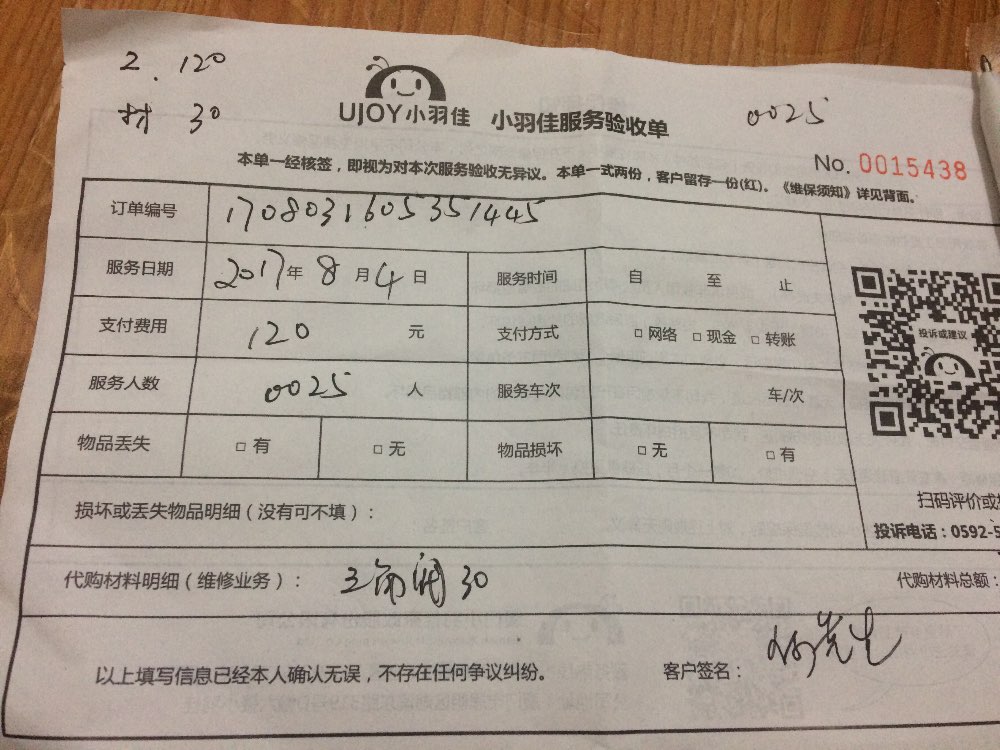 2. 120
材 30
UJOY小羽佳 小羽佳服务验收单
0025
No. 0015438
本单一经核签，即视为对本次服务验收无异议。本单一式两份，客户留存一份(红)。《维保须知》详见背面。
订单编号 1708031605351445
服务日期 2017年8月4日 服务时间 自 至 止
支付费用 120 元 支付方式 □网络 □现金 □转账
服务人数 0025 人 服务车次 车/次
物品丢失 □有 □无 物品损坏 □无 □有
投诉或建议
损坏或丢失物品明细（没有可不填）：
扫码评价或
投诉电话：0592-5
代购材料明细（维修业务）： 三角阀 30
代购材料总额：
以上填写信息已经本人确认无误，不存在任何争议纠纷。 客户签名： 先生